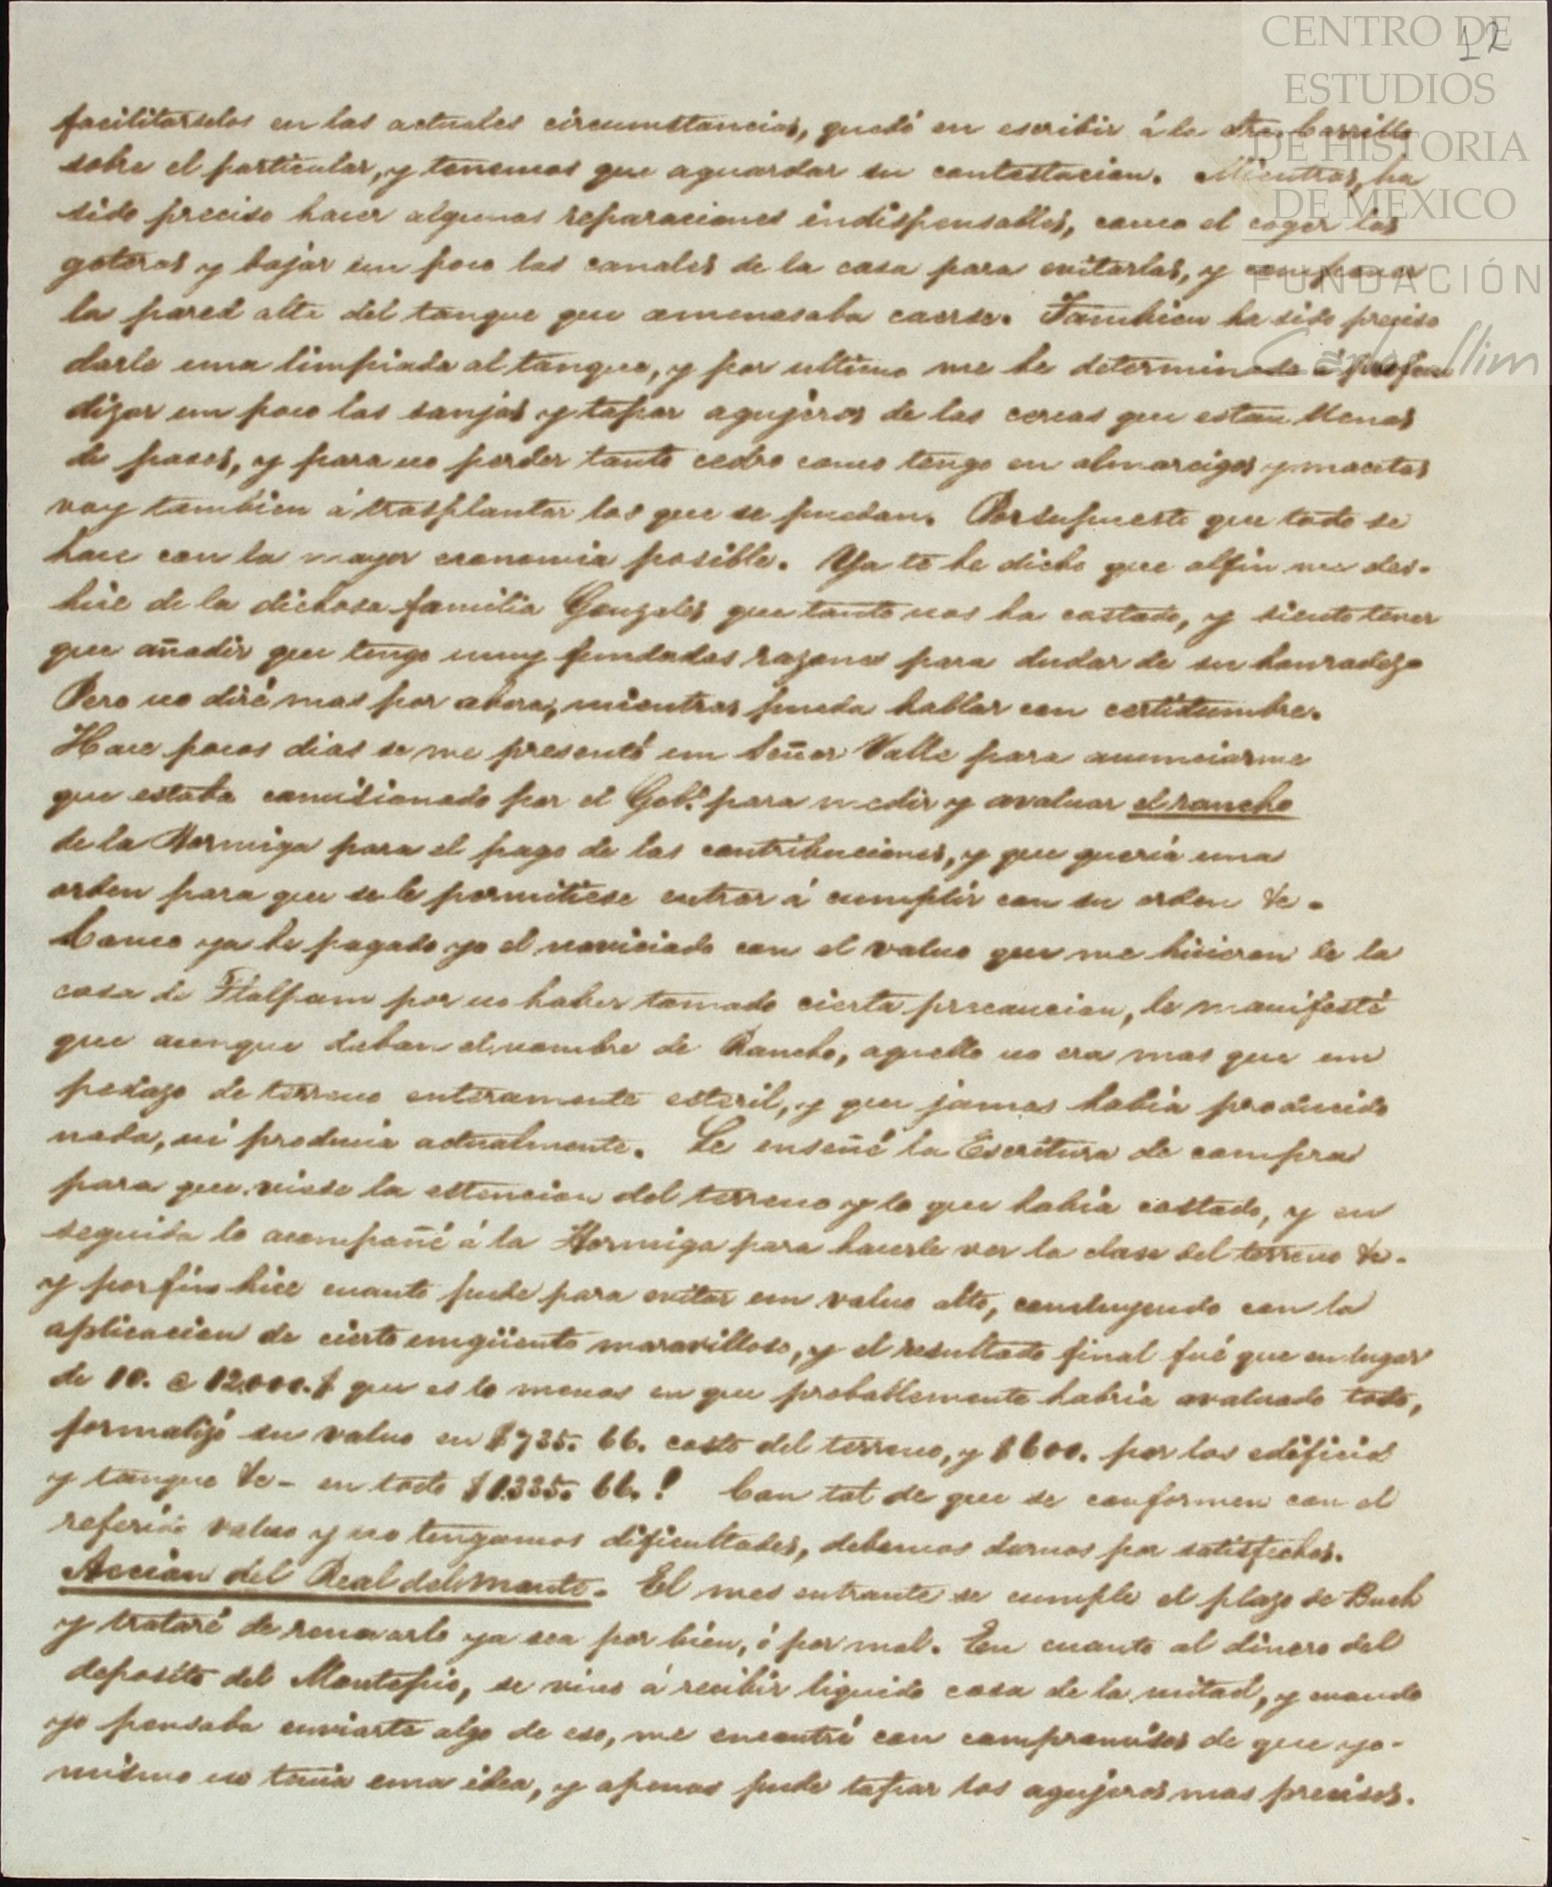 CENTRO DE
ESTUDIOS
DE HISTORIA
DE MEXICO
FUNDACIÓN
Carlos Slim
12
facilitarselos en las actuales circumstancias, quedó en escribir á la Sra. Carrillo
sobre el particular, y tenemos que aguardar su contestacion. Mientras, ha
sido preciso hacer algunas reparaciones indispensables, como el coger las
goteras y bajar un poco las canales de la casa para evitarlas, y componer
la pared alta del tanque que amenasaba caerse. Tambien ha sido preciso
darle una limpiada al tanque, y por ultimo me he determinado á profun
dizar un poco las sanjas y tapar agujeros de las cercas que estan llenas
de pasos, y para no perder tanto cedro como tengo en almarcigos y macetas
voy tambien á trasplantar los que se puedan. Porsupuesto que todo se
hace con la mayor economia posible. Ya te he dicho que alfin me des-
hice de la dichosa familia Gonzales que tanto nos ha costado, y siento tener
que añadir que tengo muy fundadas razones para dudar de su honradez.
Pero no diré mas por ahora, mientras pueda hablar con certidumbre.
Hace pocos dias se me presentó un Señor Valle para anunciarme
que estaba comisionado por el Gob.º para medir y avaluar el rancho
de la Hormiga para el pago de las contribuciones, y que queria una
orden para que se le permitiese entrar á cumplir con su orden &c.
Como ya he pagado yo el noviciado con el valuo que me hicieron de la
casa de Tlalpam por no haber tomado cierta precaucion, le manifesté
que aunque daban el nombre de Rancho, aquello no era mas que un
pedazo de terreno enteramente esteril, y que jamas habia producido
nada, ni producia actualmente. Le enseñé la Escritura de compra
para que viese la estencion del terreno y lo que habia costado, y en
seguida lo acompañé á la Hormiga para hacerle ver la clase del terreno &c.
y por fin hice cuanto pude para evitar un valuo alto, concluyendo con la
aplicacion de cierto ungüento maravilloso, y el resultado final fué que en lugar
de 10. a 12.000.$ que es lo menos en que probablemente habria avaluado todo,
formalizó su valuo en $735. 66. costo del terreno, y $600. por los edificios
y tanque &c - en todo $1.335. 66. ! Con tal de que se conformen con el
referido valuo y no tengamos dificultades, debemos darnos por satisfechos.
Accion del Real del Monte. El mes entrante se cumple el plazo de Buch
y trataré de renovarlo ya sea por bien, ó por mal. En cuanto al dinero del
deposito del Montepio, se vino á recibir liquido cosa de la mitad, y cuando
yo pensaba enviarte algo de eso, me encontré con compromisos de que yo-
mismo no tenia una idea, y apenas pude tapar los agujeros mas precisos.